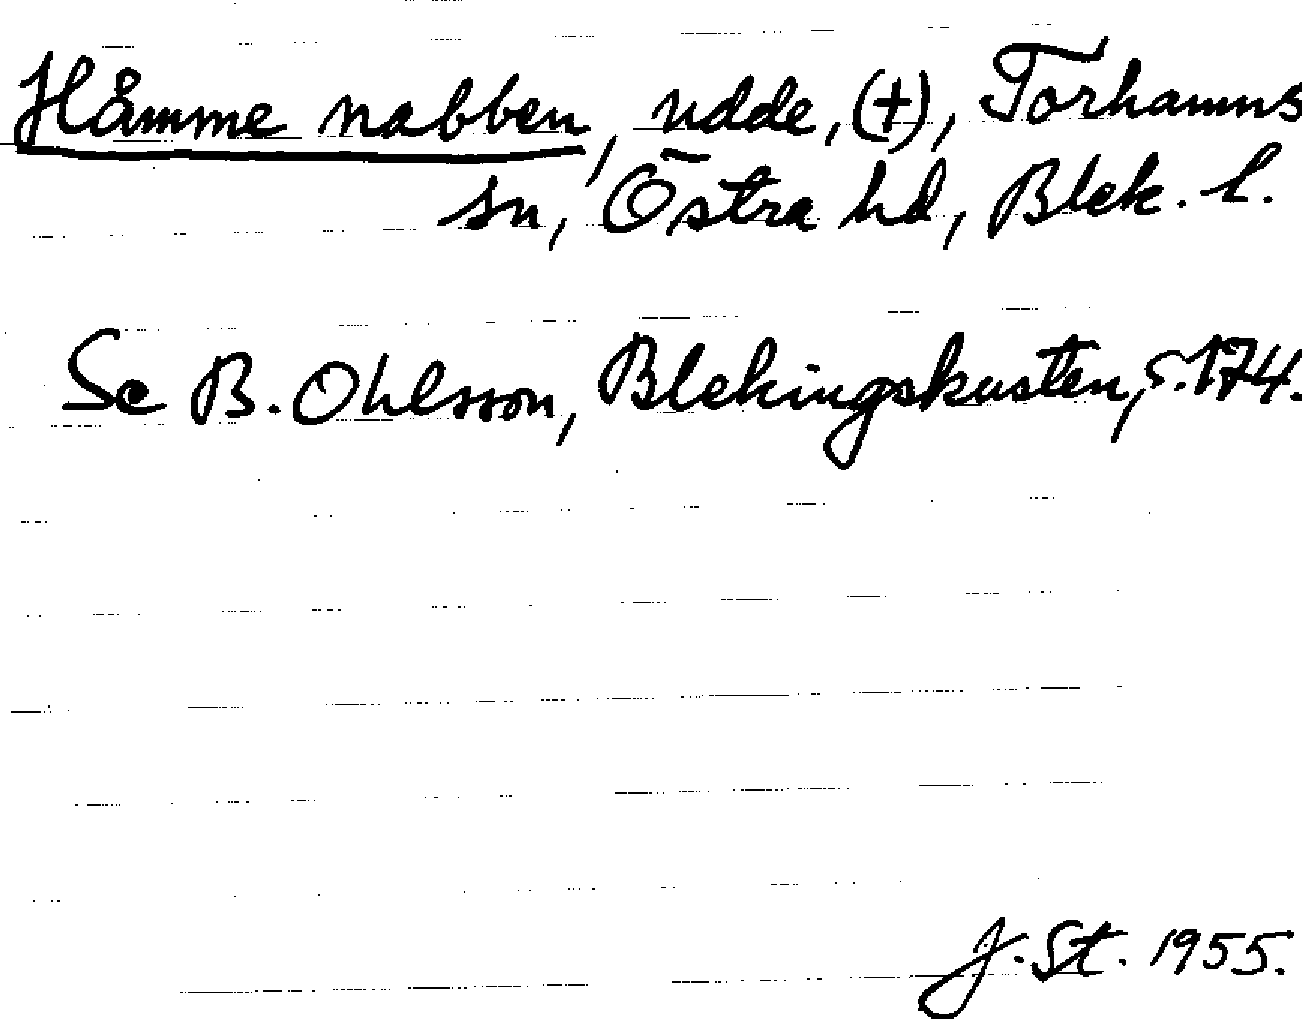 Håmme nabben, udde, (+), Torhamns
sn, Östra hd, Blek. l.
Se B. Ohlsson, Blekingskusten, s. 174.
J. St. 1955.